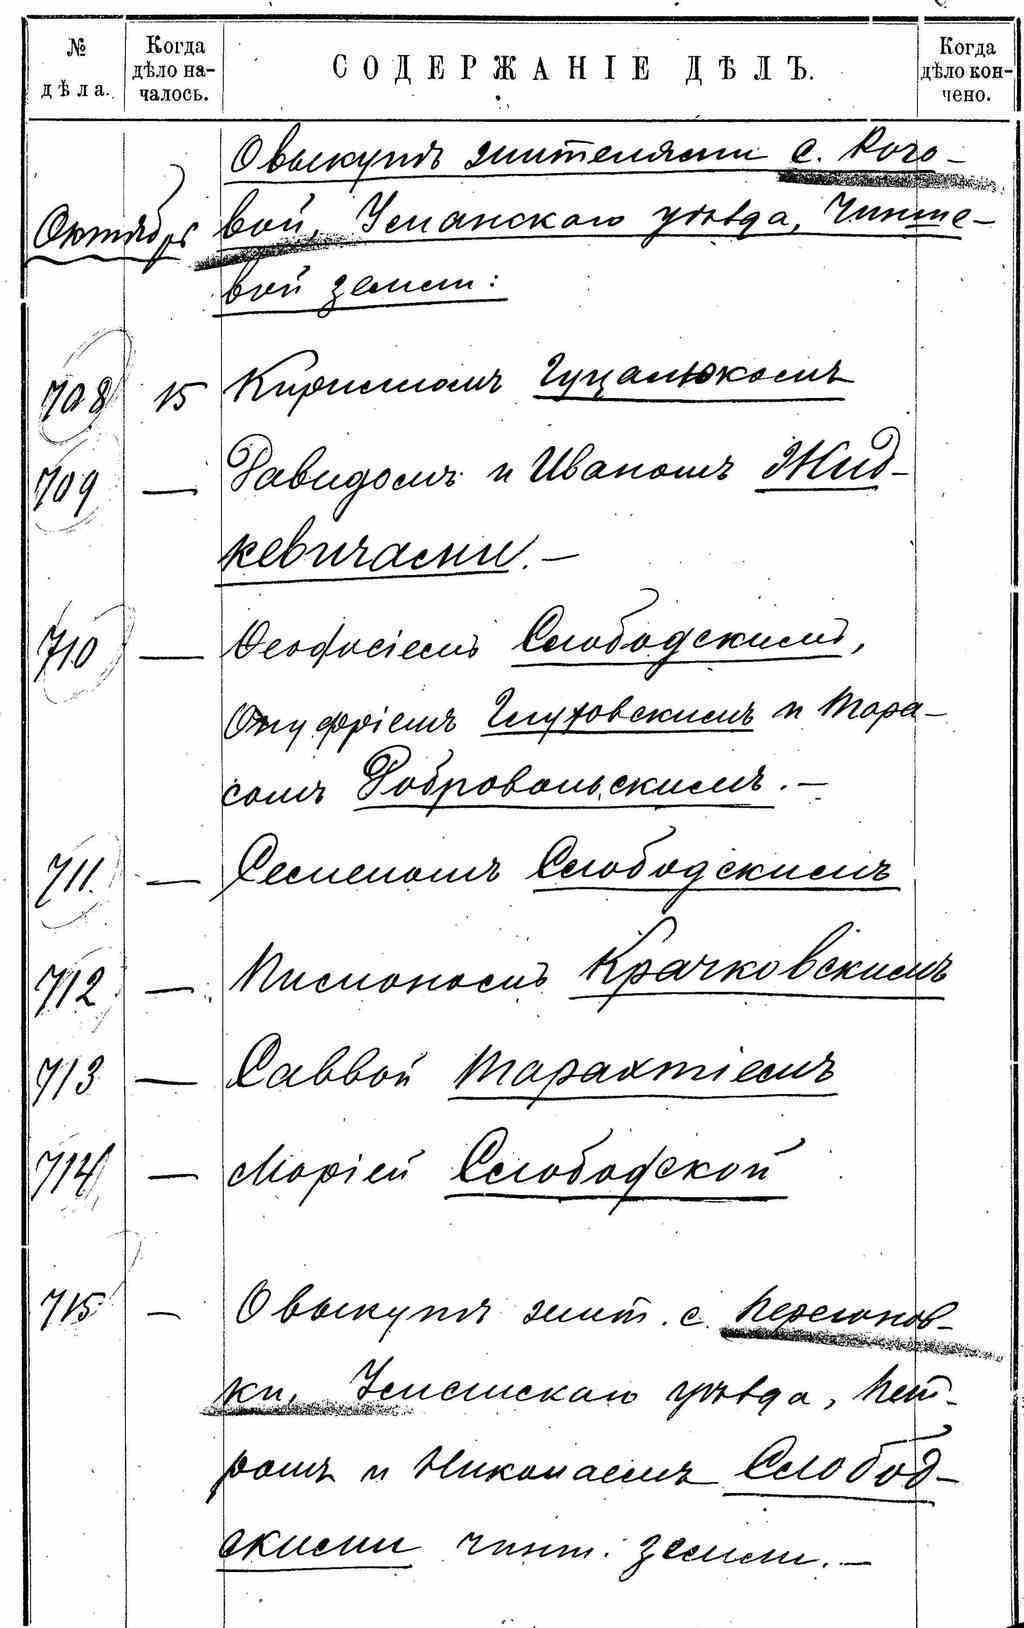 № дѣла.
Когда дѣло началось.
СОДЕРЖАНІЕ ДѢЛЪ.
Когда дѣло кончено.
О выкупѣ жителями с. Рого-
Октябрь
вой, Уманскаго уѣзда, Чинше-
вой земли:
708 15 Кирилломъ Гуцалюкомъ
709 — Давидомъ и Иваномъ Жид-
кевичами. —
710 — Ѳеодосіемъ Слободскимъ,
Онуфріемъ Глуховскимъ и Тара-
сомъ Добровольскимъ. —
711. — Семеномъ Слободскимъ
712 — Крачковскимъ
713 — Саввой Тарахтіемъ
714 — Маріей Слободской
715 — О выкупѣ жит. с. Перегонов-
ки, Уманскаго уѣзда, Пет-
ромъ и Николаемъ Слобод-
скими чинш. земли. —